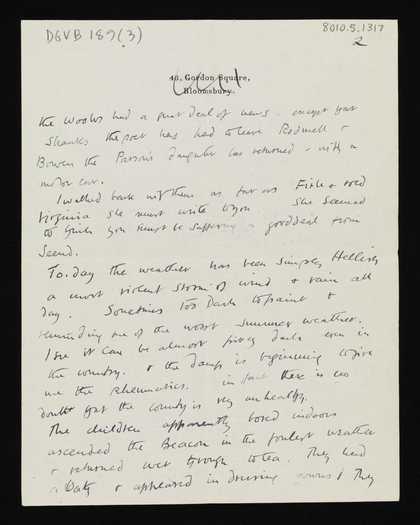 DGVB 189(3)
8010.5.1317
2
46, Gordon Square,
Bloomsbury.
the Woolves had a great deal of news - except that
Shanks the poet has had to leave Rodmell &
Bowen the Parson's daughter has returned - with a
motor car.
I walked back with them as far as & told
Virginia she must write to you She seemed
to think you must be suffering a good deal from
Seend.
To-day the weather has been simply Hellish
a most violent storm of wind & rain all
day. Sometimes too Dark to paint &
reminding me of the worst summer weather.
I see it can be almost pitch dark even in
the country. & the damp is beginning to give
me the Rheumatics. in fact there is no
doubt that the country is very unhealthy.
The children apparently bored indoors
ascended the Beacon in the foulest weather
& returned wet through to tea. They had
a Bath & appeared in dressing gowns & They